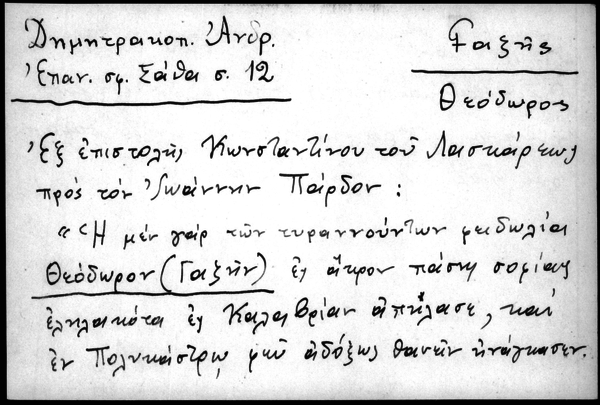 Δημητρακοπ. Ἀνδρ.
Γαζῆς
Ἐπαν. σφ. Σάθα σ. 12
Θεόδωρος
Ἐξ ἐπιστολῆς Κωνσταντίνου τοῦ Λασκάρεως
πρὸς τὸν Ἰωάννην Πάρδον :
« Ἡ μὲν γὰρ τῶν τυραννούντων φειδωλία
Θεόδωρον (Γαζῆν) εἰς ἄκρον πάσης σοφίας
ἐληλακότα εἰς Καλαβρίαν ἀπήλασε, καὶ
ἐν Πολυκάστρῳ φεῦ ἀδόξως θανεῖν ἠνάγκασεν.